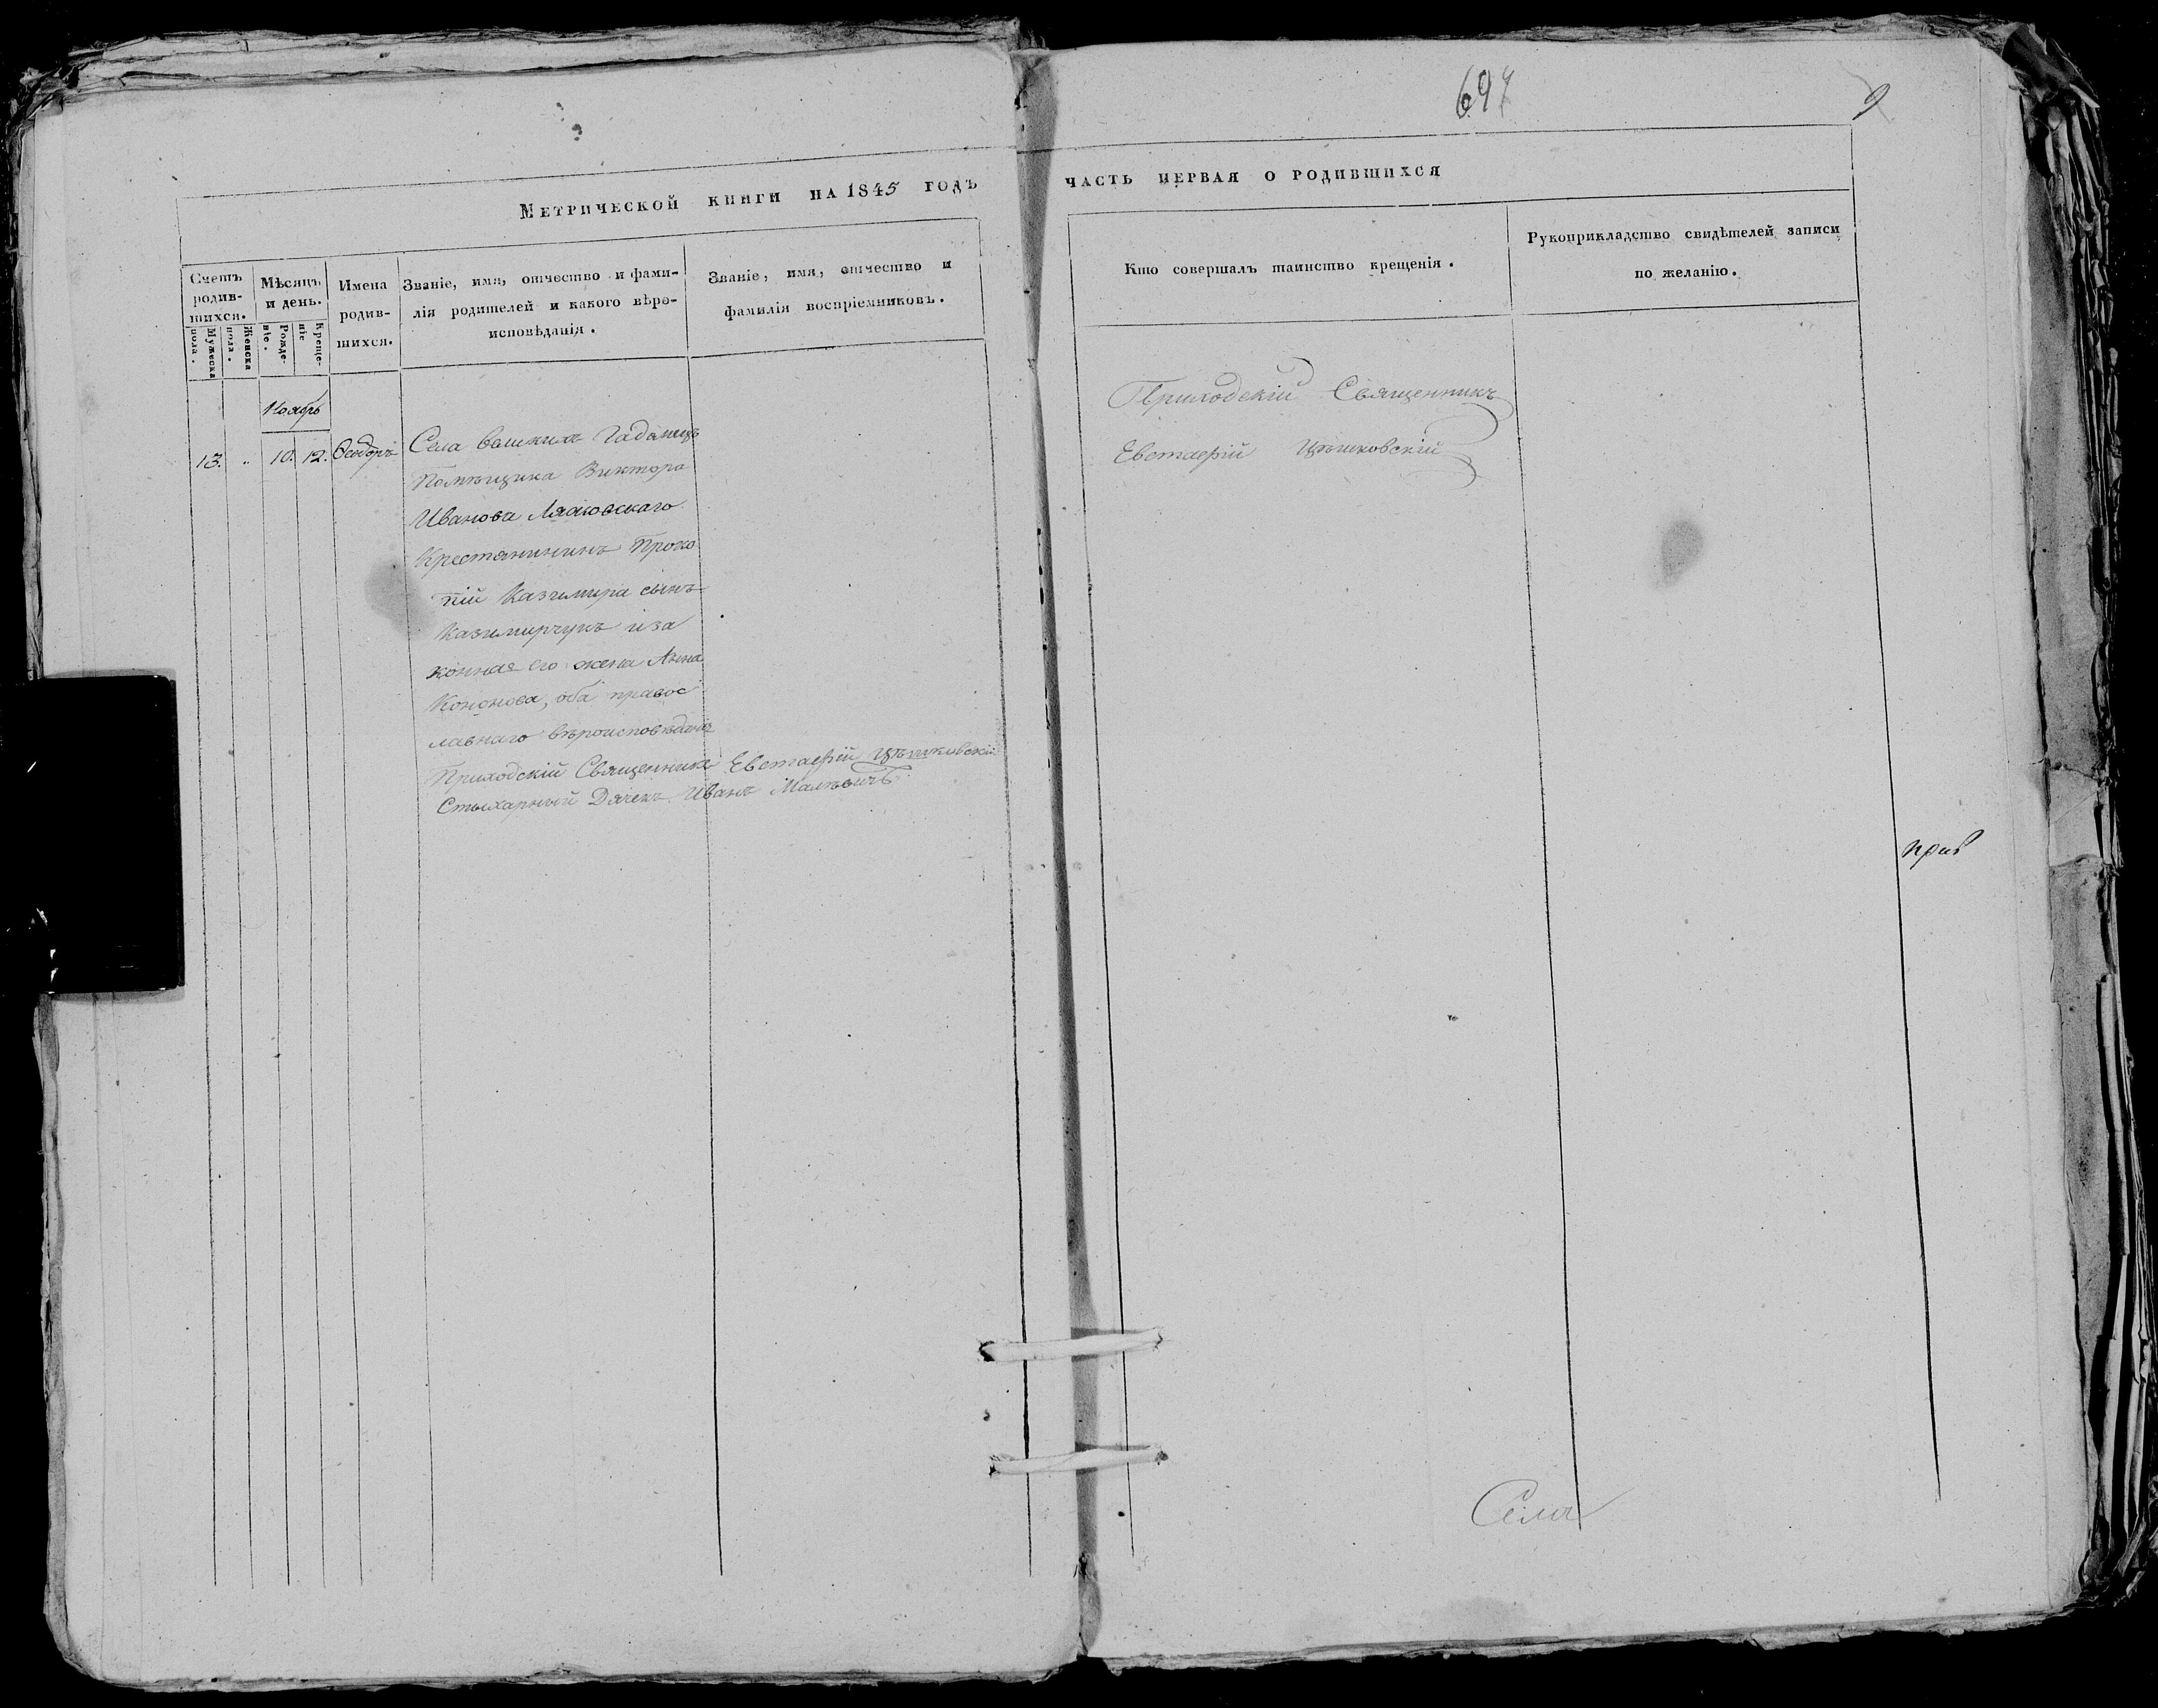 697
9
Метрической книги на 1845 годъ
часть первая о родившихся
Счетъ родив-шихся.
Мужеска пола.
Женска пола.
Мѣсяцъ и день.
Рожде-ніе.
Креще-ніе
Имена родив-шихся.
Званіе, имя, отчество и фами-
лія родителей и какого вѣро-
исповѣданія.
Званіе, имя, отчество и
фамилія воспріемниковъ.
Кто совершалъ таинство крещенія.
Рукоприкладство свидѣтелей записи
по желанію.
Ноябрь
13. „ 10. 12. Ѳеодоръ
Села Великихъ
Помѣщика Виктора
Иванова
Крестянинъ Проко
пій Казимира сынъ
Казимирчукъ и за
конная его жена Анна
Кононова, оба правос
лавнаго вѣроисповѣданія
Приходскій Священникъ Евстафій Цѣшковскій
Стихарный Дячекъ Иванъ
Приходскій Священникъ
Евстафій Цѣшковскій